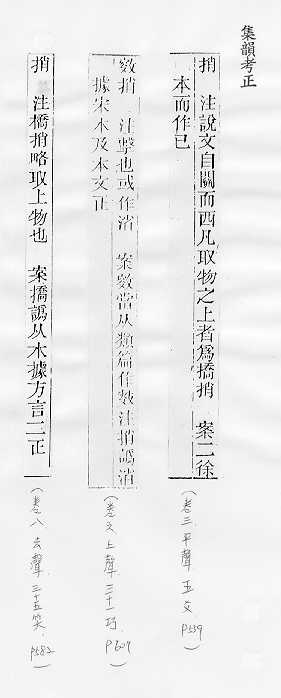 集韻考正
捎 注說文自關而西凡取物之上者爲撟捎 案二徐
本而作已
(卷三 平聲 五爻 P539)
捎 注擊也或作 案 當从類篇作 注捎譌消
據宋本及本文正
(卷六 上聲 三十一巧 P607)
捎 注撟捎略取上物也 案撟譌从木據方言二正
(卷八 去聲 三十五笑 P582)